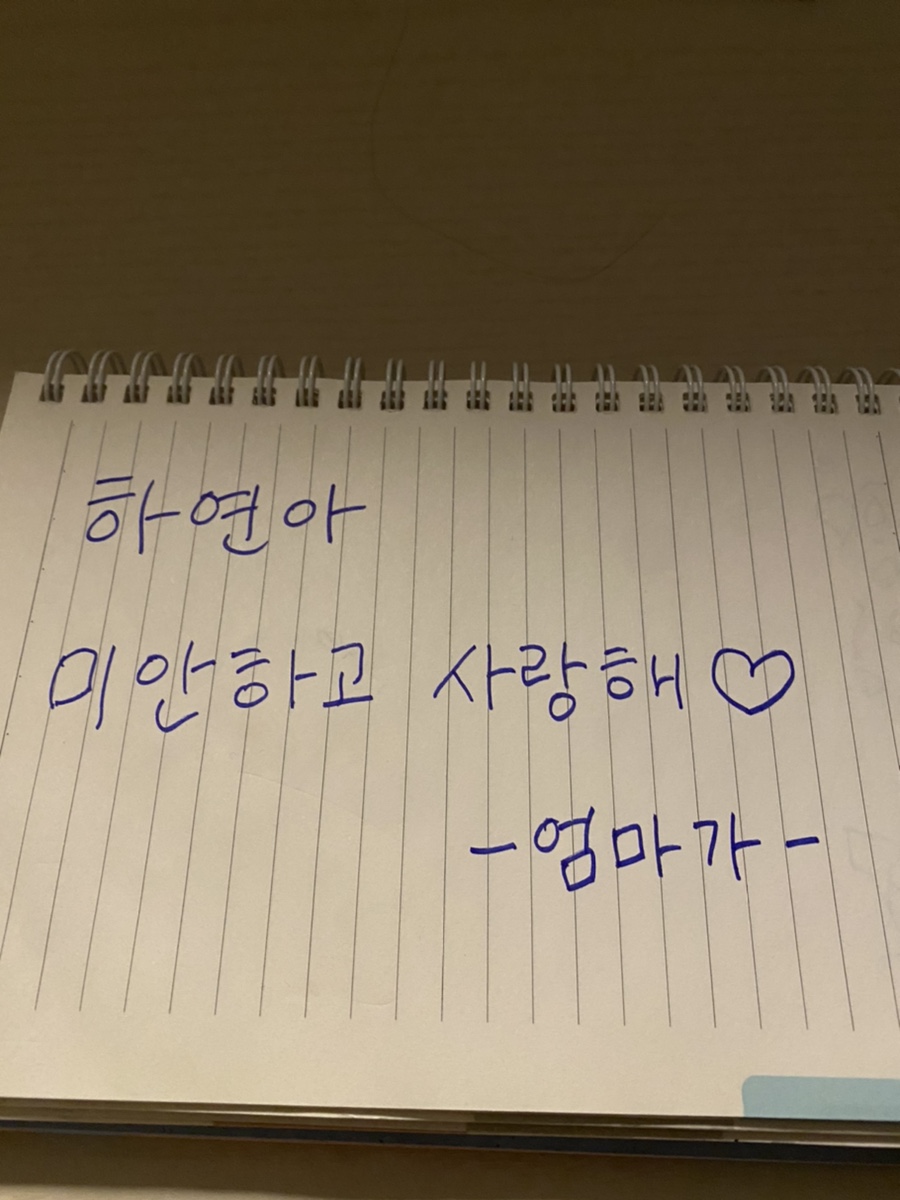 하연아
미안하고 사랑해♡
-엄마가-